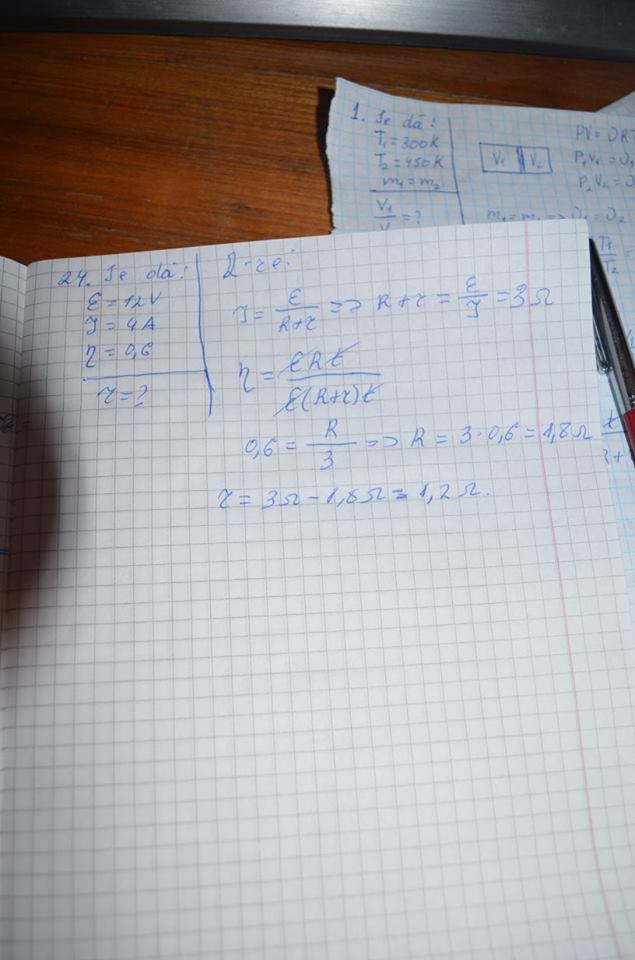 1. Se dă:
T₁=300K
T₂=450K
m₁=m₂
V₁
=?
V₁ V₂
PV=
P₁V₁=
P₂V₂=
T₁
T₂ =
24. Se dă:
ε=12V
I=4A
η=0,6
r=?
R-re:
I= ε/(R+r) => R+r = ε/I =3Ω
η= εRt/(ε(R+r)t)
0,6= R/3 => R=3·0,6=1,8Ω
r=3Ω-1,8Ω=1,2Ω.